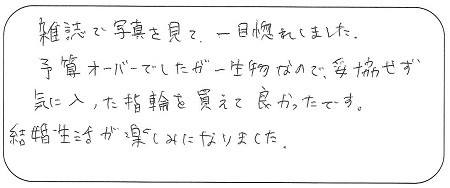 雑誌で写真を見て、一目惚れしました。
予算オーバーでしたが一生物なので、妥協せず
気に入った指輪を買えて良かったです。
結婚生活が楽しみになりました。